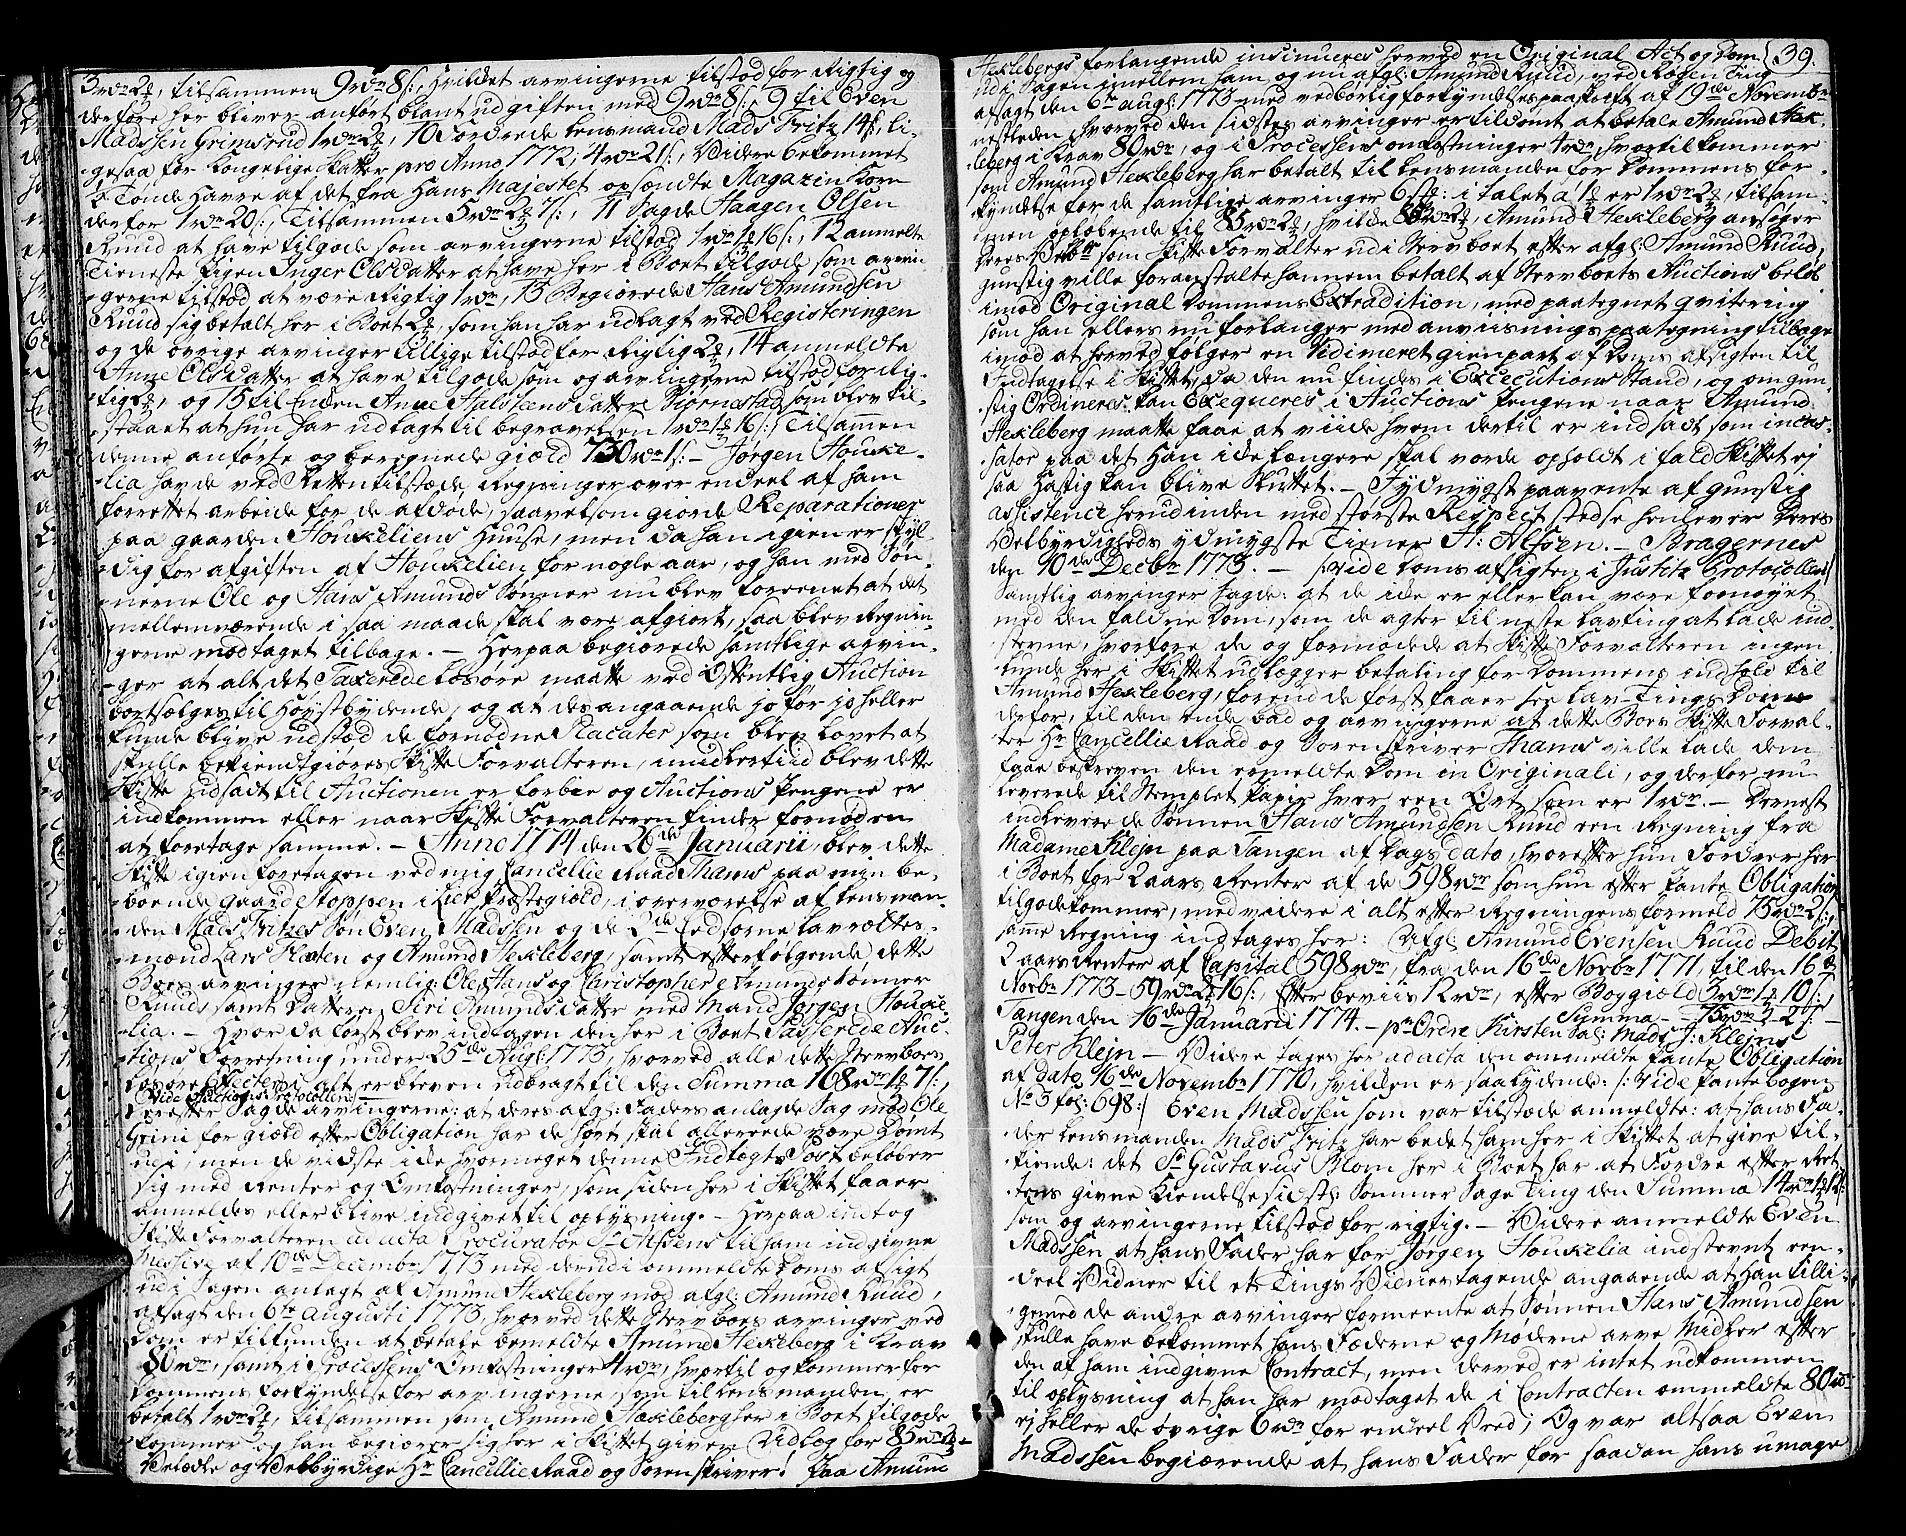 3rdr 2 , tilsammen 9rdr 8s:, hvilket arvingerne tilstod for Rigtig og
derfore her bliver anført blant udgiften med 9rdr 8s:, 9 til Even
Madssen Grimsrud 1rdr 2 , 10 Fordrede Lensmand Mads Fritz 14s, li-
gesaa for Kongelige Skatter pro Anno 1772, 4rdr 21s:, Videre bekommet
Tønde Havre af det fra Hans Majestet opsændte Magazin Korn
derfor 1rdr 20s:, Tilsammen 5rdr 2 7s:, 11 Sagde Haagen Olsen
Ruud at have tilgode som arvingerne tilstod 1rdr 1 16s:, 12 anmelte
Tieneste Pigen Inger Olsdatter at have her i Boet tilgode som arvin
gerne tilstod at være Rigtig 1rdr, 13 Begiærede Hans Amundsen
Ruud sig betalt her i Boet 2 , som han har udlagt ved Registeringen
og de øvrige arvinger tillige tilstod for Rigtig 2 , 14 anmeldte
Anne Olsdatter at have tilgode som og arvingerne tilstod for Rig-
tig , og 15 til Enden Anne Halsteensdatter Biørnestad som blev til-
staaet at hun har udlagt til begravelsen 1rdr 1 16s:, Tilsammen
denne anførte og beregnede giæld 730rdr 1s:- Jørgen Houke-
lia havde ved Retten tilstæde Regninger over endeel af ham
forrettet arbeide for de afdøde, saavelsom giorde Reparationer
paa gaarden Houkeliens Huuse, men da han igien er skyl-
dig for afgiften af Houkelien for nogle aar, og han med Søn-
nerne Ole og Hans Amunds Sønner nu blev forenet at det
mellemværende i saa maade skal være afgiort, saa blev Regnin-
gerne modtaget tilbage. - Herpaa begiærede samtlige arvin-
ger at alt det Taxerede Løsøre maatte ved Offentlig Auction
bortsælges til Høystbydende, og at desangaaende jo før jo heller
kunde blive udstæd de fornødne Placater som blev lovet at
skulle bekiendtgiøres Skifte Forvalteren, imidlertiid blev dette
Skifte udsadt til Auctionen er forbie og Auctions Pengene er
indkommen eller naar Skifte Forvalteren finder fornøden
at foretage samme. - Anno 1774 den 26de Januarii, blev dette
Skifte igien foretagen ved mig Cancellie Raad Thams paa min be-
boende gaard Stoppen i Lier Præstegiæld, i overværelse af Lensman-
den Mads Fritzes Søn Even Madssen og de 2de Eedsorne Lavrettes-
mænd Lars Flaten og Amund Hexleberg, samt efterfølgende dette
Boes arvinger nemlig Ole, Hans og Christopher Amunds Sønner
Ruuds samt Datteren Siri Amunds datter med Mand Jørgen Houke-
lia. - Hvor da først blev indtagen den her i Boet Passerede Auc-
tions Forretning under 25de Augl: 1773, hvorved alle dette Stervboes
Løsøre Effecter i alt er bleven udbragt til den Summa 168rdr 1 7s:,
Vide Auctions Protocollen
Derefter Sagde arvingerne: at deres afgl: Faders anlagde Sag mod Ole
Grini for giæld efter Obligation har de hørt skal allereede være Domt
udi, men de vidste ikke hvormeget denne Indtægts Post beløber
sig med Renter og Omkostninger, som siden her i Skiftet faaer
anmeldes eller blive indgivet til oplysning. - Herpaa indtog
Skifte Forvalteren ad acta Procurator Sr Alsøens til ham indgivne
Missive af 10de Decembr 1773 med derudi ommeldte Doms afsigt
udi Sagen anlagt af Amund Hexleberg mod afgl: Amund Ruud,
afsagt den 6te augusti 1773, hvorved dette Stervboes arvinger ved
Dom er tilfunden at betale bemeldte Amund Hexleberg i Krav
80rdr, samt i Processens Omkostninger 4rdr, hvortil og kommer for
Dommens Forkyndelse for arvingerne, som til Lensmanden er
betalt 1rdr 2 , tilsammen som Amund Hexleberg her i Boet tilgode
kommer og han begiærer sig her i Skiftet given Udlæg for 85rdr 2 -
Velædle og Velbyrdige Hr Cancellie Raad og Sorenskriver! Paa Amund
39.
Hexlebergs forlangende insinueres herved en Original Act og Dom
udi Sagen imellem ham og nu afgl: Amund Ruud, ved Røgen Ting
afsagt den 6te augl: 1773 med vedbørlig forkyndelses paaskrift af 19de Novembr
nestleden, hvorved den sidstes arvinger er tildømt at betale Amund Hex-
leberg i Krav 80rdr, og i Processens omkostninger 4rdr, hvortil kommer
som Amund Hexleberg har betalt til Lensmanden for Dommens for-
kyndelse for de samtlige arvinger 6 stk: i talet á 1 er 1rdr 2 , tilsam-
men opløbende til 85rdr 2 , hvilke 85rdr 2 , Amund Hexleberg ansøger
Deres Velbr som Skifte Forvalter udi Stervboet efter afgl: Amund Ruud,
gunstig ville foranstalte hannem betalt af Stervboets Auctions beløb
imod Original Dommens Extradition, med paategnet qvitering
som han ellers nu forlanger med anviisnings paategning tilbage
imod at herved følger en Vidimeret gienpart af Doms afsigten til
Indtagelse i Skiftet, da den nu findes i Excecutions Stand, og om gun-
stig Ordineres, kan Exeqveres i Auctions Pengene naar Amund
Hexleberg maatte faae at viide hvem dertil er indsadt som incas-
sator paa det han ikke længere skal vorde opholdt i fald Skiftet ej
saa hastig kan blive Sluttet. - Jydmygst paavente af gunstig
assistence herudinden med største Respect stedse henlever Deres
Velbyrdigheds ydmygste Tiener H: Alsøen. - Bragernes
den 10de Decbr 1773. - /:vide Doms afsigten i Justitz Protocollen:/
Samtlig arvinger sagde: at de ikke er eller kan være fornøyet
med den faldne Dom, som de agter til neste Lavting at lade ind-
stevne, hvorfore de og formodede at Skifte Forvalteren ingen-
lunde her i Skiftet udlægger betaling for Dommens indhold til
Amund Hexleberg, forend de først faaer see Lav-Tings Dom
derfor, til den ende bad og arvingerne at dette Boes Skifte Forval-
ter Hr Cancellie Raad og Sorenskriver Thams ville lade dem
faae beskreven den ermeldte Dom in Originali, og derfor nu
Leverede til Stemplet Papir hver een Ort som er 1rdr. - Dernest
indleverede Sønnen Hans Amundsen Ruud een Regning fra
Madame Klejn paa Tangen af Dags dato, hvorefter hun Fordrer her
i Boet for 2 aars Renter af de 598rdr som hun efter Pante Obligation
tilgodekommer, med videre i alt efter Regningens formeld 75rdr 2s:,
samme Regning indtages her: Afgl: Amund Evensen Ruud Debit
2 aars Renter af Capital 598rdr, fra den 16de Novbr 1771, til den 16de
Novbr 1773 - 59rdr 2 16s:, Efter beviis 12rdr, efter Boggiæld 3rdr 1 10s:,
Summa - 75rdr 2 2s: -
Tangen den 16de Januarii 1774. - pr Ordre Kirsten Sal: Mads J: Klejns
Peter Klejn - Videre tages her ad acta den ommeldte Pante Obligation
af dato 16de Novembr 1770, hvilken er saalydende: /:vide Pantebogen
No 3 fol: 698:/ Even Madssen som var tilstæde anmeldte: at hans Fa-
der Lensmanden Mads Fritz har bedet ham her i Skiftet at give til-
kiende: det Sr Gustavus Blom her i Boet har at Fordre efter Ret-
tens givne Kiendelse sidstl: Sommer Sage Ting den Summa 14rdr 1 12s:
som og arvingerne tilstod for rigtig. - Videre anmeldte Even
Madssen at hans Fader har for Jørgen Houkelia indstevnt een-
deel Vidner til et Tings Vidnes tagende angaaende at han tilli-
gemed de andre arvinger formeente at Sønnen Hans Amundsen
skulle have bekommet hans Fæderne og Møderne arve Midler efter
den af ham indgivne Contract, men derved er intet udkommen
til oplysning at han har modtaget de i Contracten ommeldte 80rdr
ej heller de øvrige 6rdr for endeel Vred; Og var altsaa Even
Madssen begiærende at hans Fader for saadan hans umage